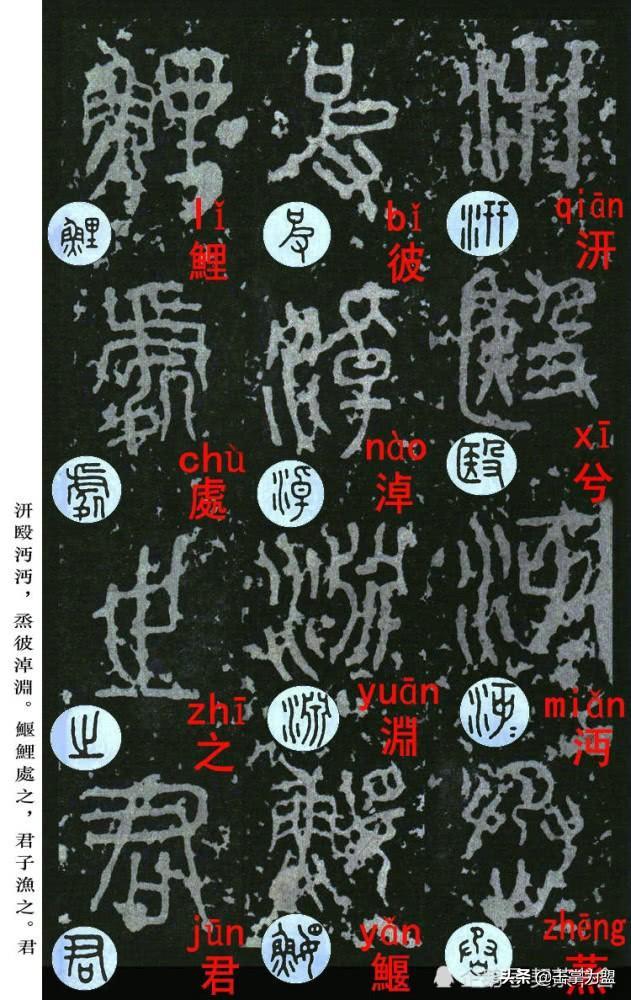 汧殹沔沔，烝彼淖淵。鰋鯉處之，君子漁之。君
qiān
汧
xī
兮
miǎn
沔
zhēng
蒸
bǐ
彼
nào
淖
yuān
淵
yǎn
鰋
lǐ
鯉
chù
處
zhī
之
jūn
君
头条@击掌为盟